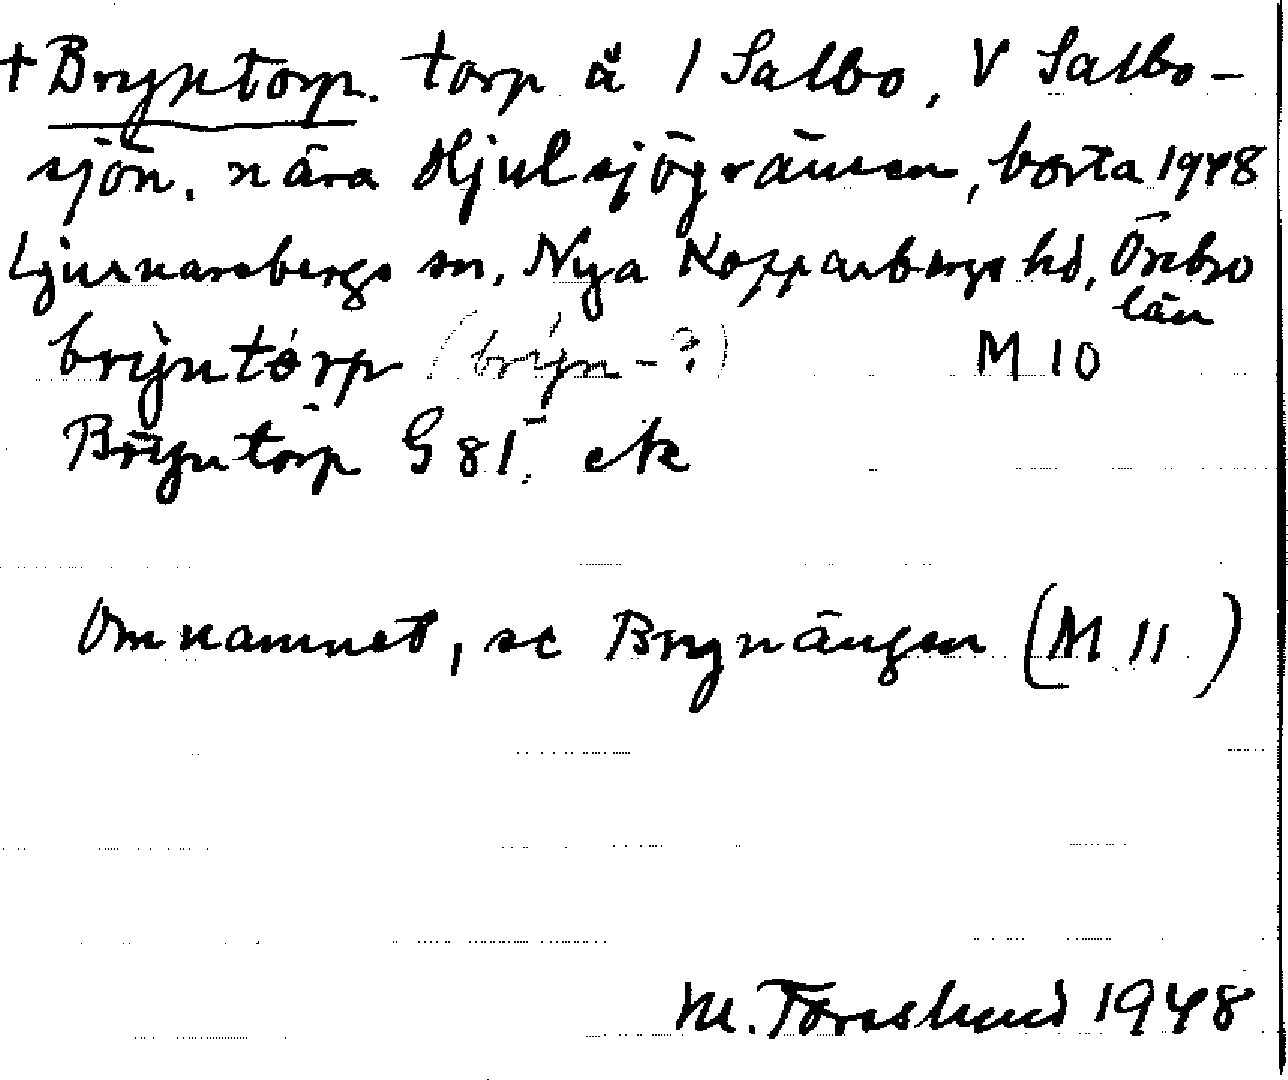 + Bryntorp. torp å 1 Salbo, V Salbo-
sjön. nära Hjulsjögränsen, borta 1948
Ljusnarsbergs sn, Nya Kopparbergs hd, Örebro
län
brỳntórp (brýn-?) M 10
Bryntorp G 81. ek
Om namnet, se Brynängen (M 11)
M. Forslund 1948